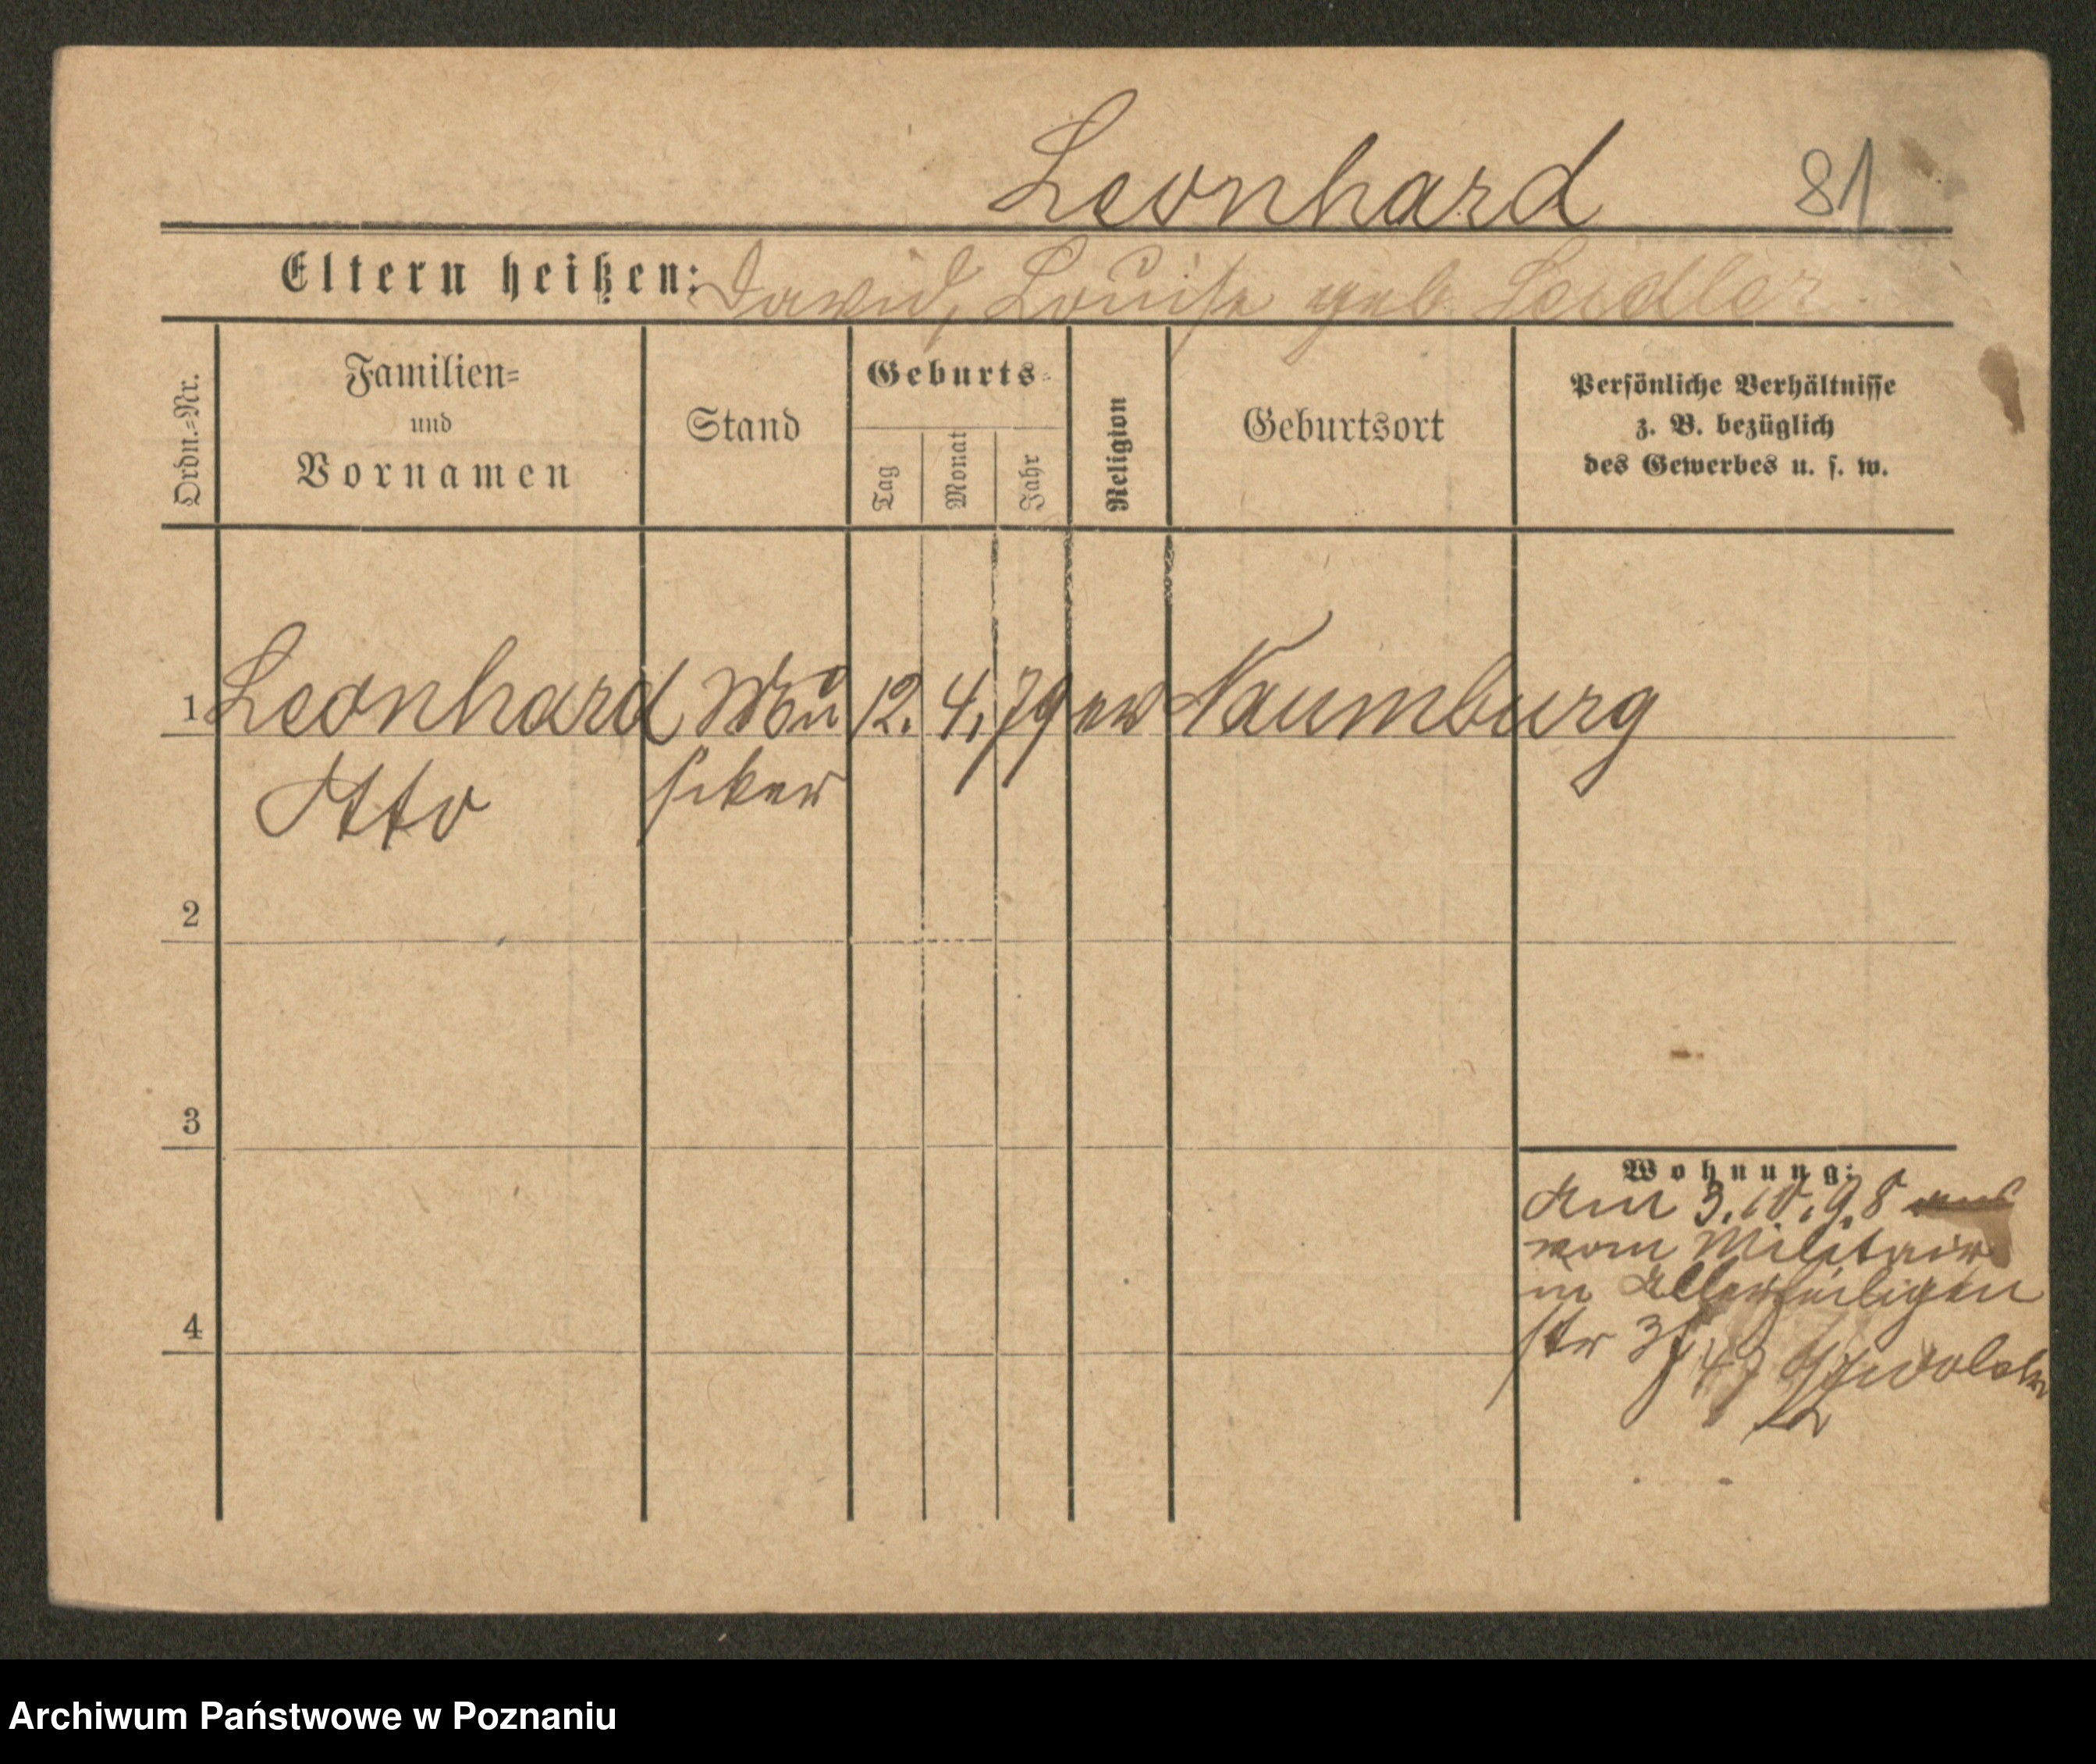 Leonhard 81
Eltern heißen: David, Louise geb. Seidler
Ordn.=Nr.
Familien=
und
Vornamen
Stand
Geburts=
Tag
Monat
Jahr
Religion
Geburtsort
Persönliche Verhältnisse
z. B. bezüglich
des Gewerbes u. s. w.
1 Leonhard Mu 12. 4. 79 ev Naumburg
Otto siker
2
3
Wohnung:
am 3.10.98
vom Militair
in Allerheiligen
4
str
Archiwum Państwowe w Poznaniu